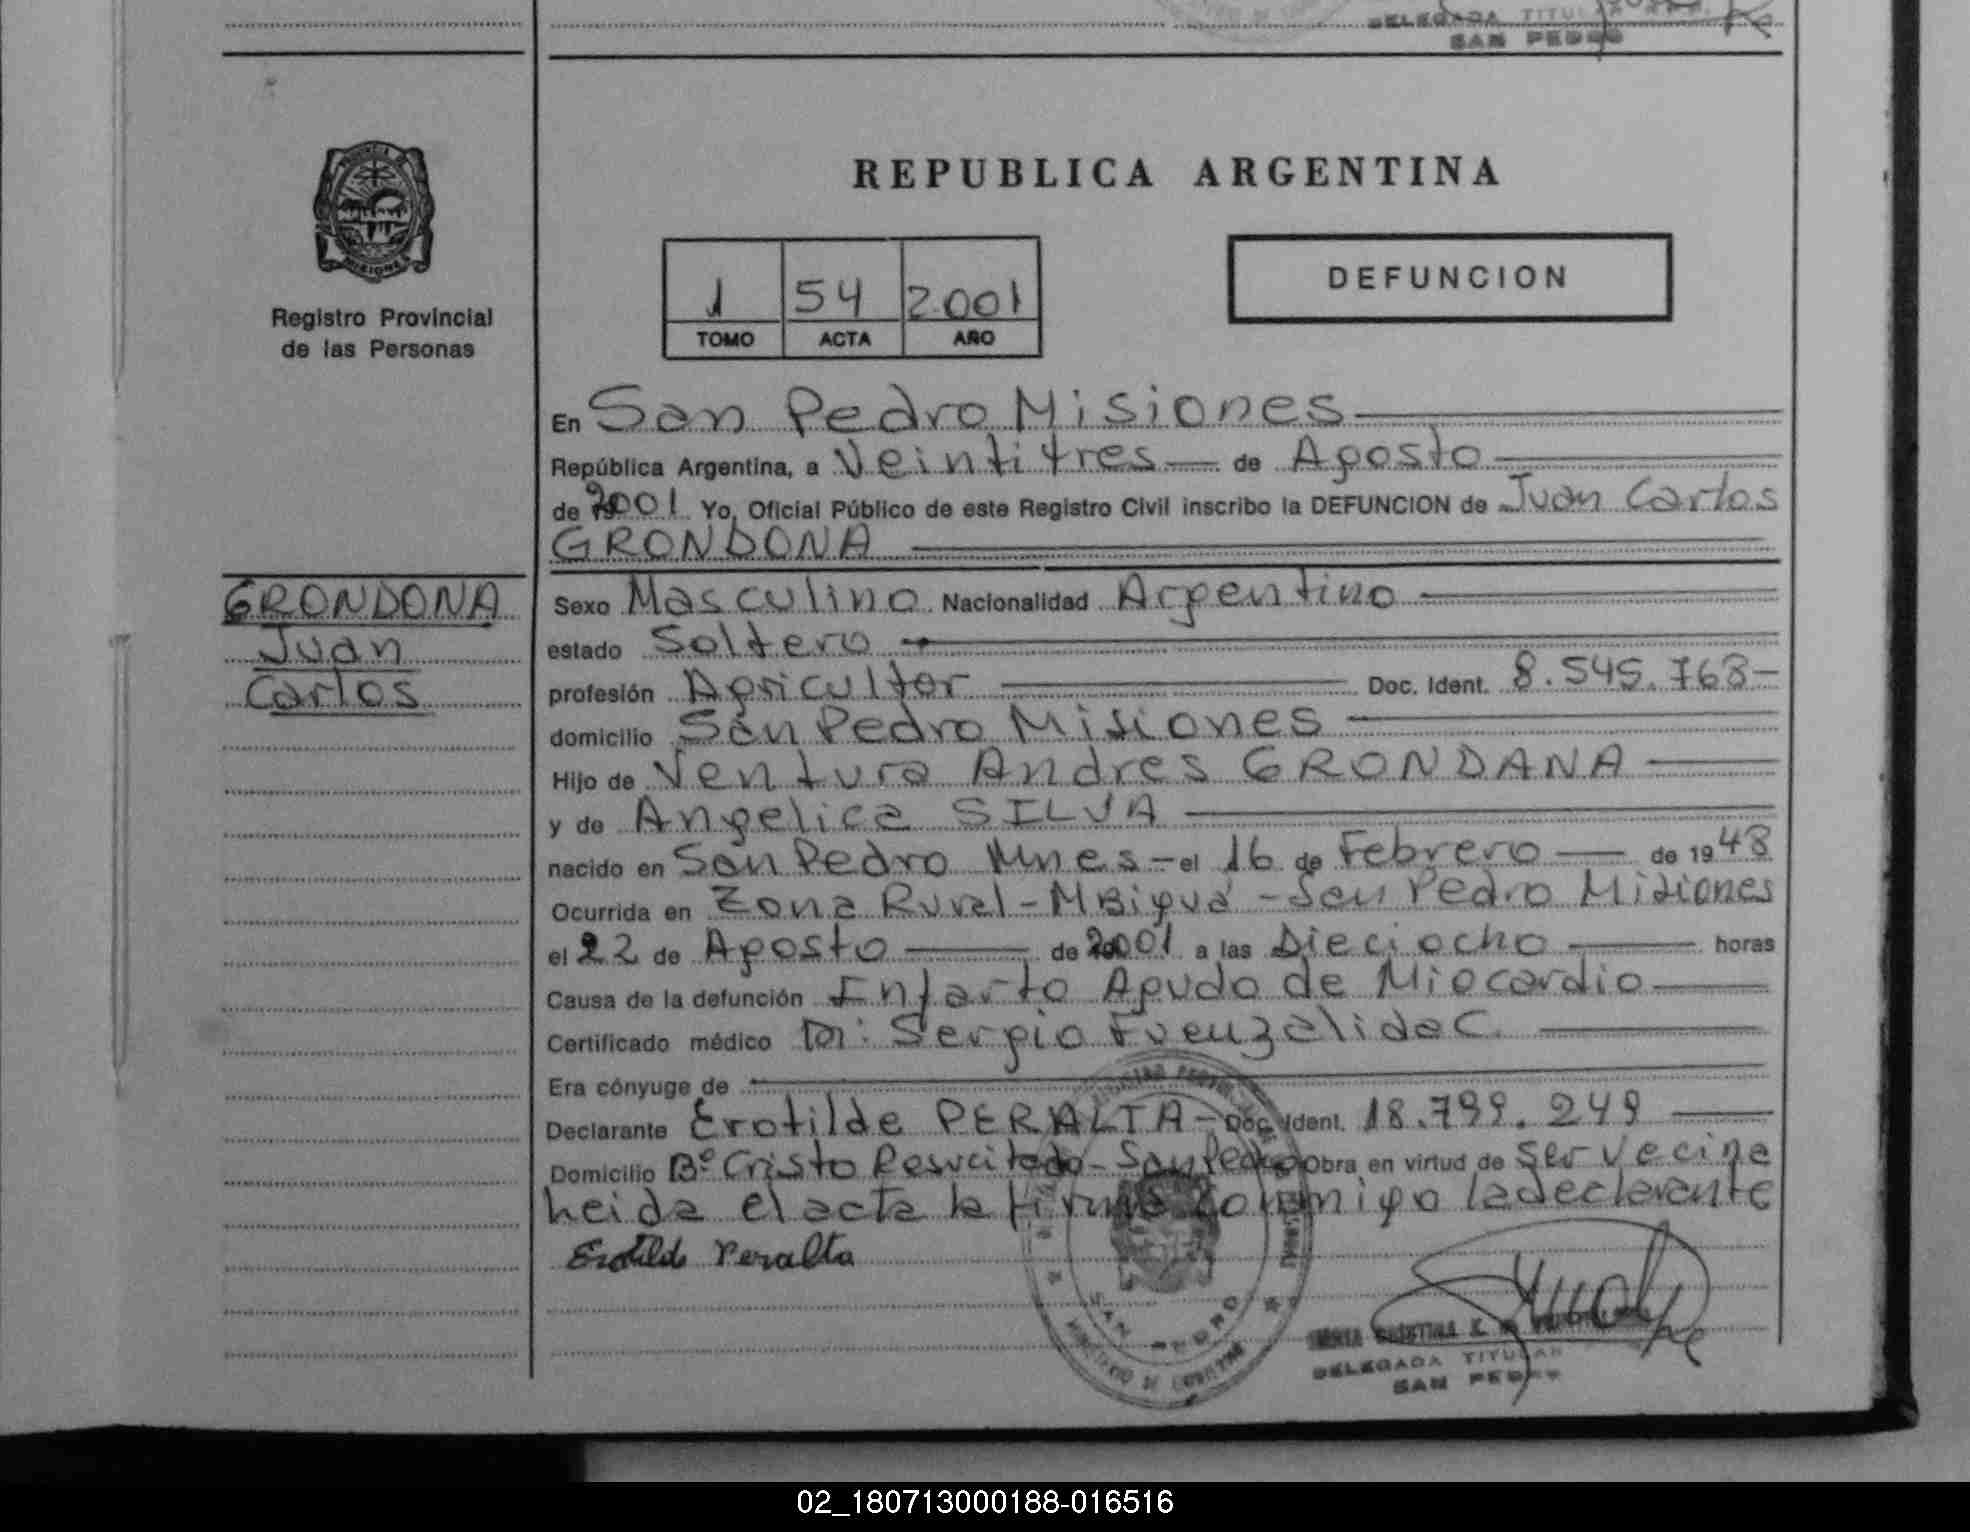 DELEGADA TITULAR
SAN PEDRO
PROVINCIA DE
MISIONES
Registro Provincial
de las Personas
REPUBLICA ARGENTINA
1 54 2001
TOMO ACTA AÑO
DEFUNCION
En San Pedro Misiones
República Argentina, a Veintitres de Agosto
de 2001 Yo, Oficial Público de este Registro Civil inscribo la DEFUNCION de Juan Carlos
GRONDONA
GRONDONA
Juan
Carlos
Sexo Masculino Nacionalidad Argentino
estado Soltero
profesión Agricultor Doc. Ident. 8.545.768-
domicilio San Pedro Misiones
Hijo de Ventura Andres GRONDANA
y de Angelica SILVA
nacido en San Pedro Mnes - el 16 de Febrero de 1948
Ocurrida en Zona Rural - MBiguá - San Pedro Misiones
el 22 de Agosto de 2001 a las Dieciocho horas
Causa de la defunción Infarto Agudo de Miocardio
Certificado médico Dr: Sergio Fuenzalida C.
Era cónyuge de
Declarante Erotilde PERALTA - Doc. Ident. 18.799.249
Domicilio Bº Cristo Resucitado - San Pedro Obra en virtud de ser vecina
heida el acta la firma conmigo la declarante
Erotilde Peralta
SAN PEDRO
MINISTERIO DE GOBIERNO
DELEGADA TITULAR
SAN PEDRO
02_180713000188-016516